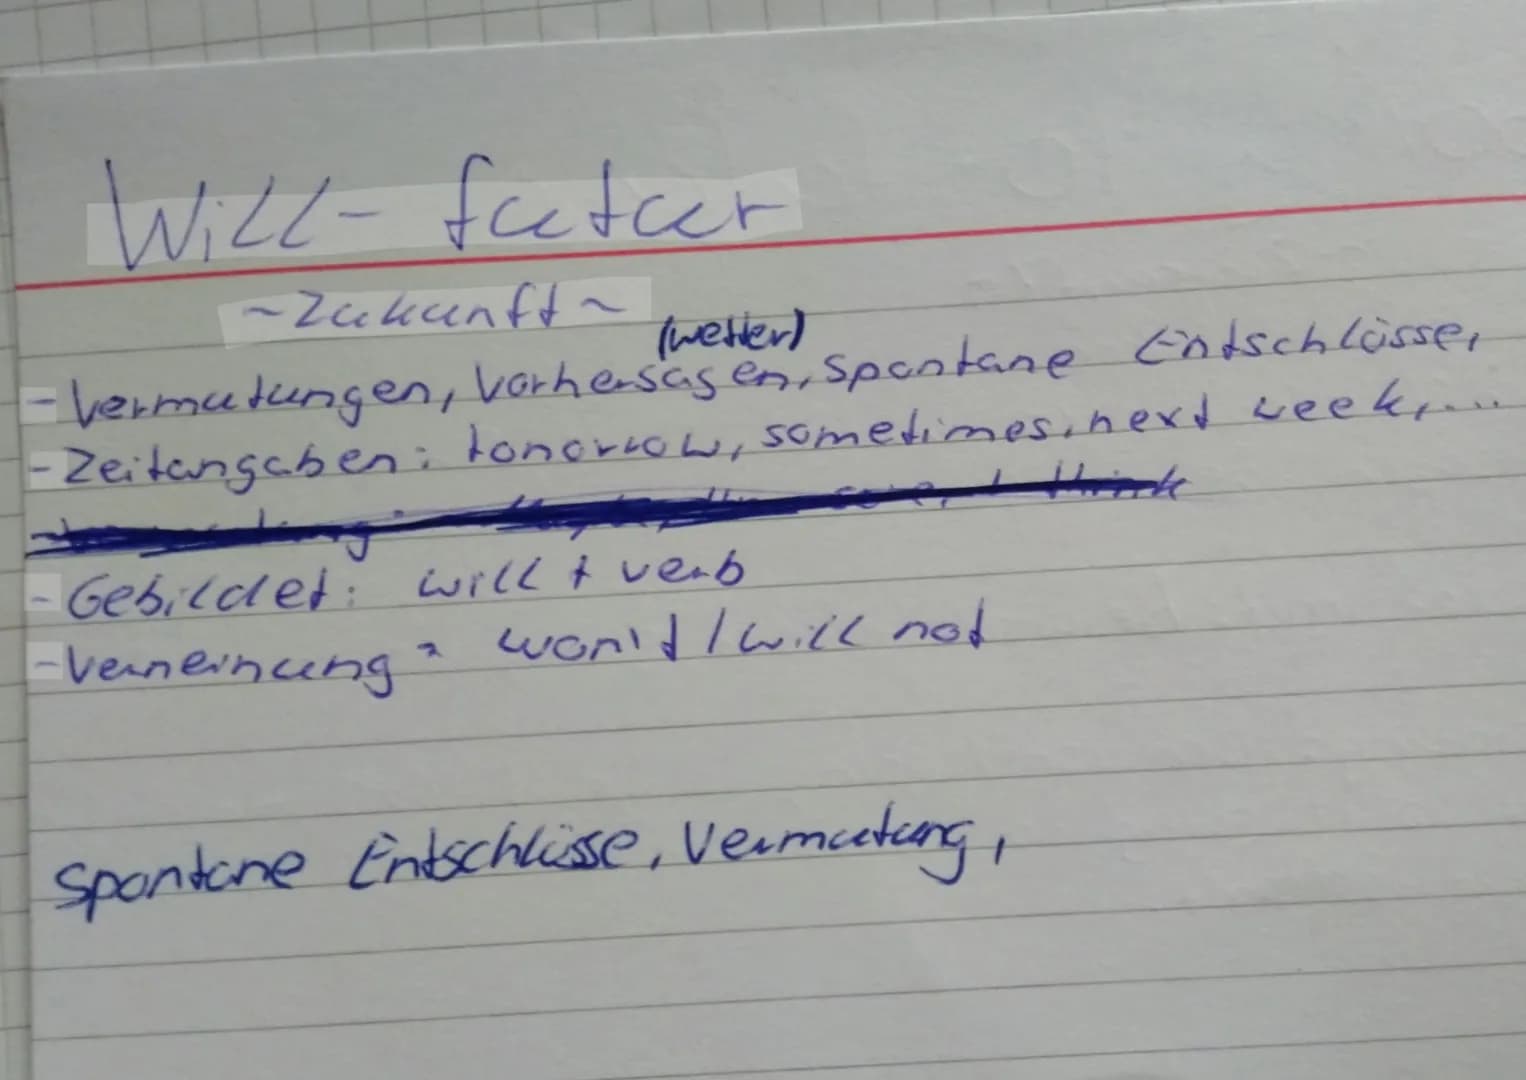 Will- futur
~Zukunft~
(wetter)
- Vermutungen, Vorhersagen, spontane Entschlüsse,
- Zeitangaben: tomorrow, sometimes, next week,...
think
- Gebildet: will + verb
- Verneinung: won't / will not
Spontane Entschlüsse, Vermutung,